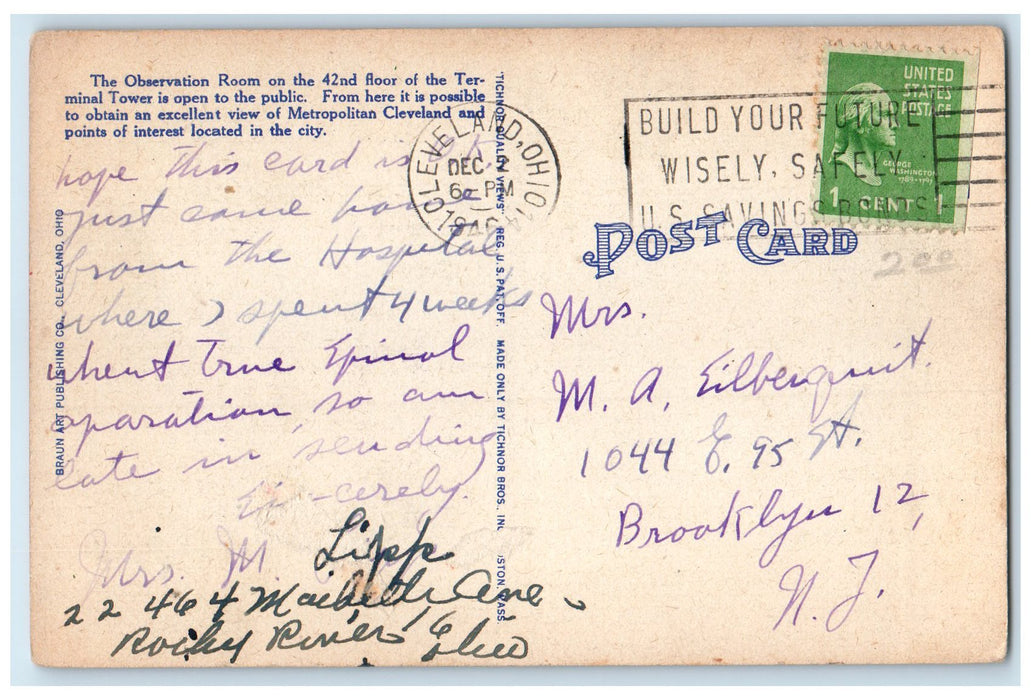 The Observation Room on the 42nd floor of the Ter-
minal Tower is open to the public. From here it is possible
to obtain an excellent view of Metropolitan Cleveland and
points of interest located in the city.
hope this card is
just came home
from the Hospital
where I spent 4 weeks
whent True Spinal
oparation, so am
late in sending
Mrs. M. Lipp
22 464 Ave.
Rocky River, 16 Ohio
BRAUN ART PUBLISHING CO., CLEVELAND, OHIO
"TICHNOR QUALITY VIEWS" REG. U. S. PAT. OFF. MADE ONLY BY TICHNOR BROS., IN STON, MASS.
CLEVELAND, OHIO
DEC 2
6 - PM
1946
BUILD YOUR FUTURE
WISELY, SAFELY
U.S. SAVINGS BONDS
UNITED
STATES
POSTAGE
GEORGE
WASHINGTON
1789-1797
1 CENT 1
POST CARD
200
Mrs.
M. A.
1044 E. 95 St.
Brooklyn 12,
N. Y.